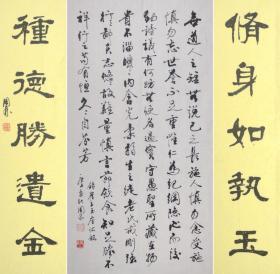 脩身如執玉
無道人之短無說己之長施人慎勿念受施
慎勿忘世譽不足慕唯仁為紀綱隱心而後
動謗議庸何傷無使名過實守愚聖所臧在涅
貴不淄曖曖內含光柔弱生之徒老氏戒剛強
行行鄙夫志悠悠故難量慎言節飲食知足勝不
祥行之苟有恆久久自芬芳
錄崔子玉座右銘
種德勝遺金